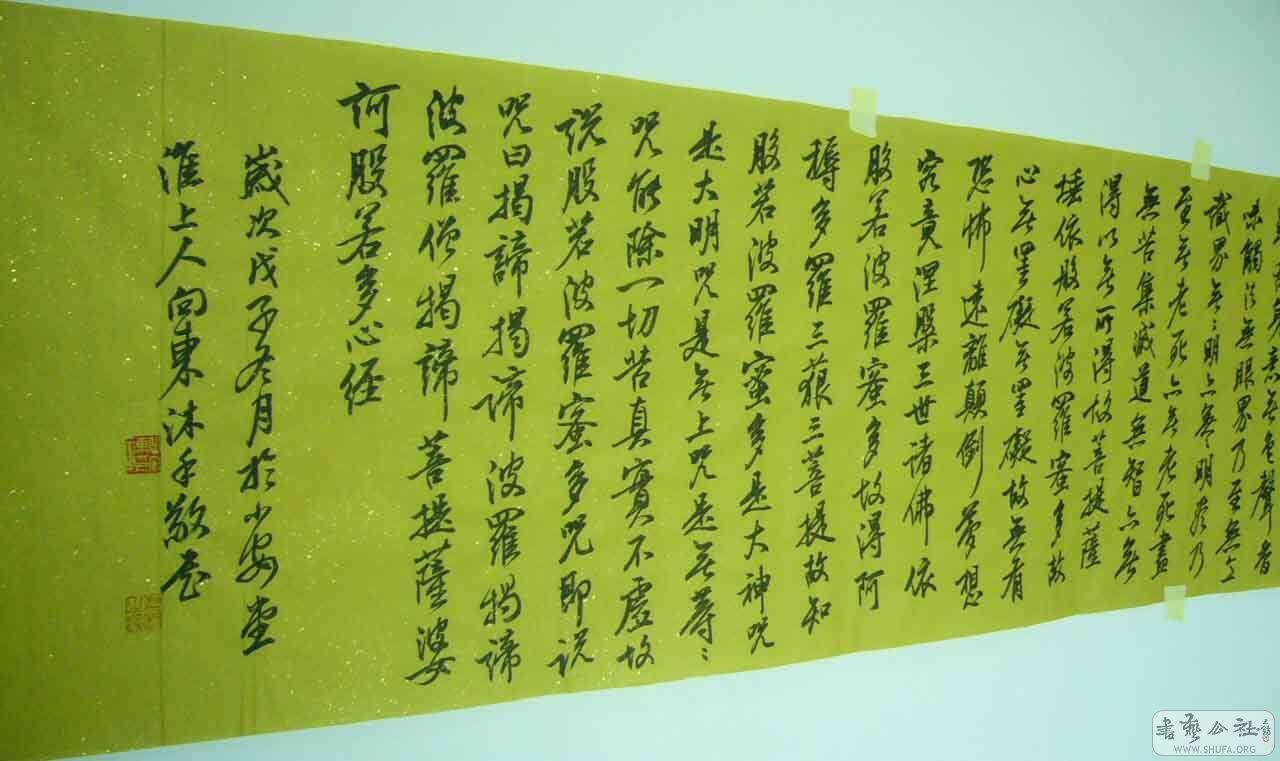 意无色聲香
味觸法無眼界乃至無意
識界无々明亦无明盡乃
至无老死亦无老死盡
無苦集滅道無智亦無
得以无所得故菩提薩
埵依般若波羅蜜多故
心无罣礙无罣礙故無有
恐怖遠離顛倒夢想
究竟涅槃三世諸佛依
般若波羅蜜多故得阿
耨多羅三藐三菩提故知
般若波羅蜜多是大神咒
是大明咒是无上咒是无等々
咒能除一切苦真實不虛故
説般若波羅蜜多咒即説
咒曰揭諦揭諦波羅揭諦
波羅僧揭諦菩提薩婆
訶般若多心經
歲次戊子冬月於小安堂
淮上人向東沐手敬書
書藝公社
WWW.SHUFA.ORG